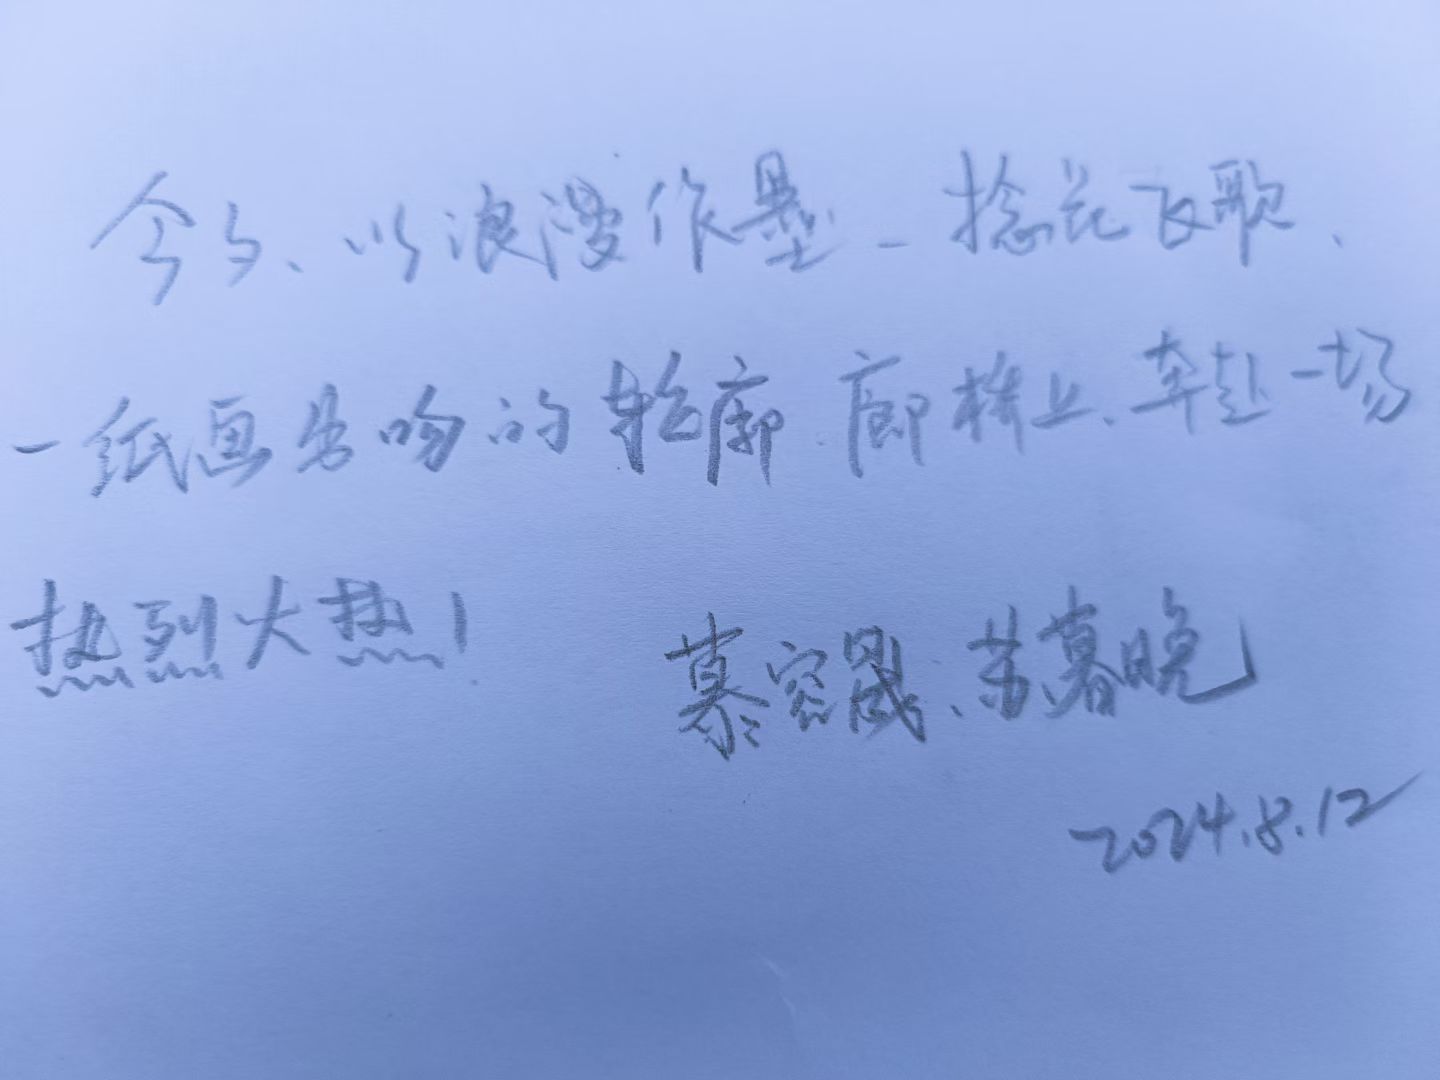 今夕、以浪漫作墨_捻花飞歌、
一纸画男吻的轮廓.廊桥上、奔赴一场
热烈火热！
慕容晟、苏暮晚
2024.8.12